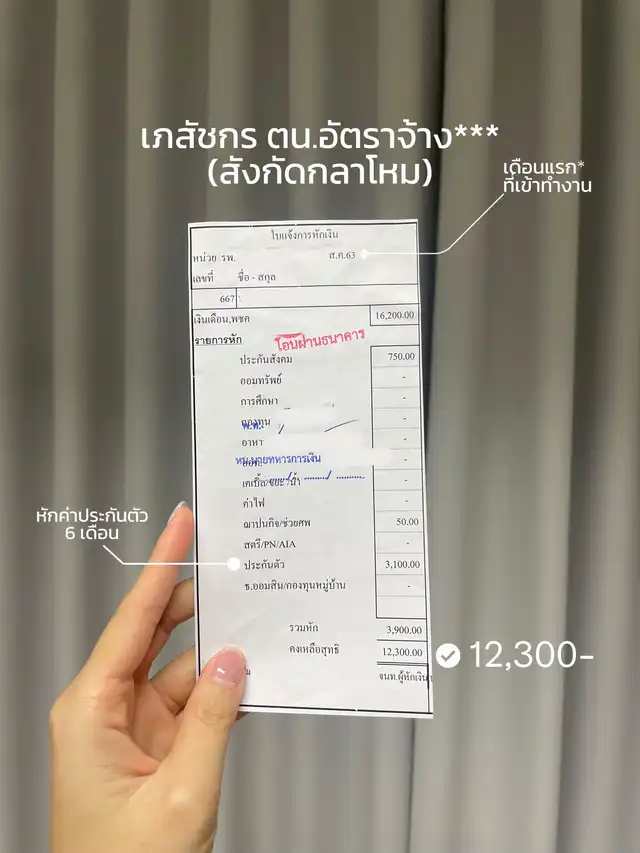 เภสัชกร ตน.อัตราจ้าง***
(สังกัดกลาโหม)
เดือนแรก*
ที่เข้าทำงาน
ใบแจ้งการหักเงิน
หน่วย รพ. ส.ค.63
เลขที่ ชื่อ - สกุล
667
เงินเดือน,พชค 16,200.00
รายการหัก
โอนผ่านธนาคาร
ประกันสังคม 750.00
ออมทรัพย์ -
การศึกษา -
กองทุน -
พ.ท.
อาหา -
หน.นายทหารการเงิน
เคเบิ้ล/ขยะ/น้ำ -
ค่าไฟ -
ฌาปนกิจ/ช่วยศพ 50.00
สตรี/PN/AIA -
หักค่าประกันตัว
6 เดือน
ประกันตัว 3,100.00
ธ.ออมสิน/กองทุนหมู่บ้าน -
รวมหัก 3,900.00
คงเหลือสุทธิ 12,300.00
12,300-
จนท.ผู้หักเงิน